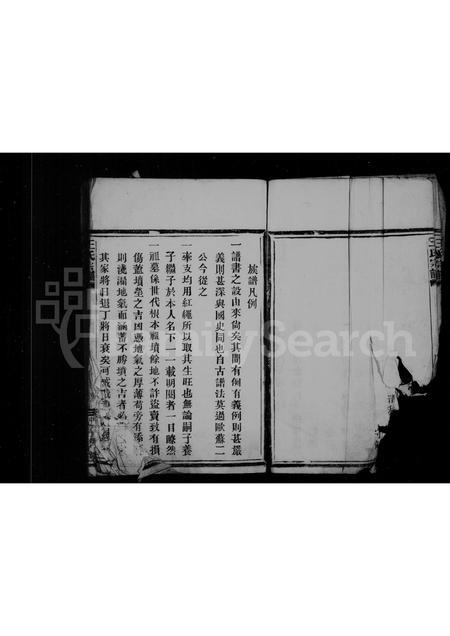 族譜凡例
一譜書之設由來尚矣其間有例有義例則甚嚴
義則甚深與國史同也自古譜法莫過歐蘇二
公今從之
一牽支均用紅繩所以取其生旺也無論嗣子養
子繼子於本人名下一一載明閱者一目瞭然
一祖墓係世代根本祖墳餘地不許盜賣致有損
傷蓋墳塋之吉凶憑地氣之厚薄苟旁有
則洩漏地氣而涵蓄不勝墳之吉者
其家將日退丁將日衰矣可
氏宗譜
FamilySearch